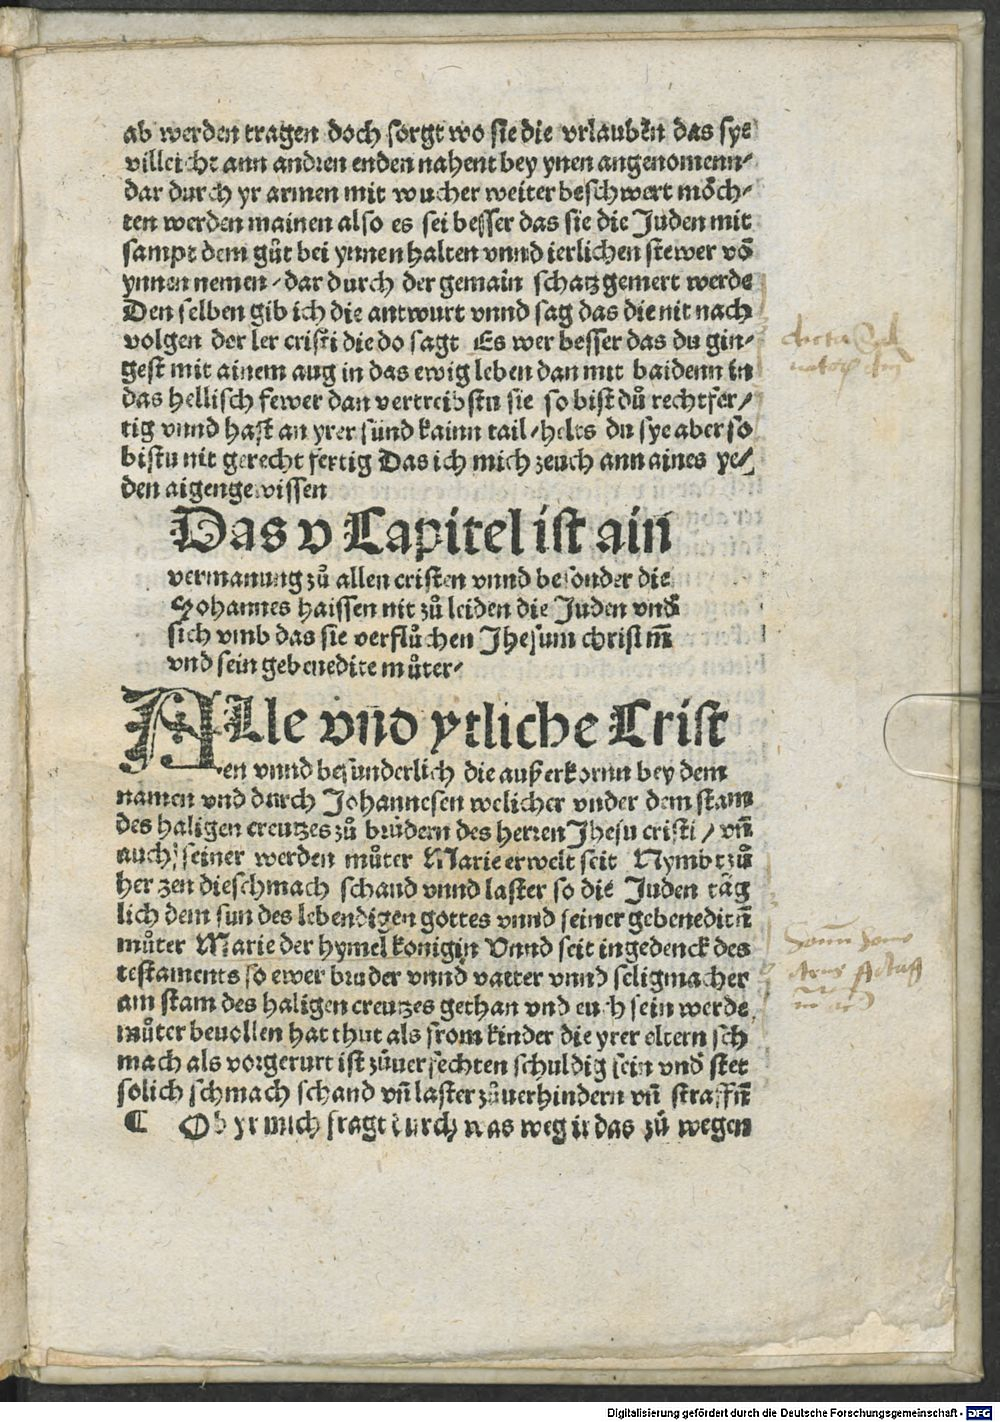 ab werden tragen doch sorgt wo sie die vrlaubẽn das sye
villeicht ann andren enden nahent bey ynen angenomenn⸗
dar durch yr armen mit wucher weiter beschwert mȯch⸗
ten werden mainen also es sei besser das sie die Juden mit
sampt dem gůt bei ynnen halten vnnd ierlichen stewer vō
ynnen nemen⸗ dar durch der gemain schatz gemert werde
Den selben gib ich die antwurt vnnd sag das die nit nach
volgen der ler cristi die do sagt Es wer besser das du gin⸗
gest mit ainem aug in das ewig leben dan mit baidenn in
das hellisch fewer dan vertreibstu sie so bist dů rechtfer/
tig vnnd hast an yrer sünd kainn tail⸗heltes du sye aber so
bistu nit gerecht fertig Das ich mich zeuch ann aines ye/
den aigen gewissen
Das v Capitel ist ain
vermanung zů allen cristen vnnd besonder die
Johannes haissen nit zů leiden die Juden vnd
sich vmb das sie verflůchen Jhesum christm̄
vnd sein gebenedite můter⸗
ALle vnd ytliche Crist
en vnnd besunderlich die außerkornn bey dem
namen vnd durch Johannesen welicher vnder dem stam
des haligen creutzes zů brůdern des herren Jhesu cristi / vñ
auch seiner werden můter Marie erwelt seit Nymbt zů
her zen die schmach schand vnnd laster so die Juden tāg
lich dem sun des lebendigen gottes vnnd seiner gebeneditñ
můter Marie der hymel konigin Vnnd seit ingedenck des
testaments so ewer bruder vnnd vatter vnnd seligmacher
am stam des haligen creutzes gethan vnd euch sein werde
můter beuollen hat thut als from kinder die yrer eltern sch
mach als vorgerurt ist zůuerfechten schuldig sein vnd stet
solich schmach schand vñ laster zůuerhindern vñ straffñ
¶ Ob yr mich fragt durch was weg ir das zů wegen
Digitalisierung gefördert durch die Deutsche Forschungsgemeinschaft - DFG